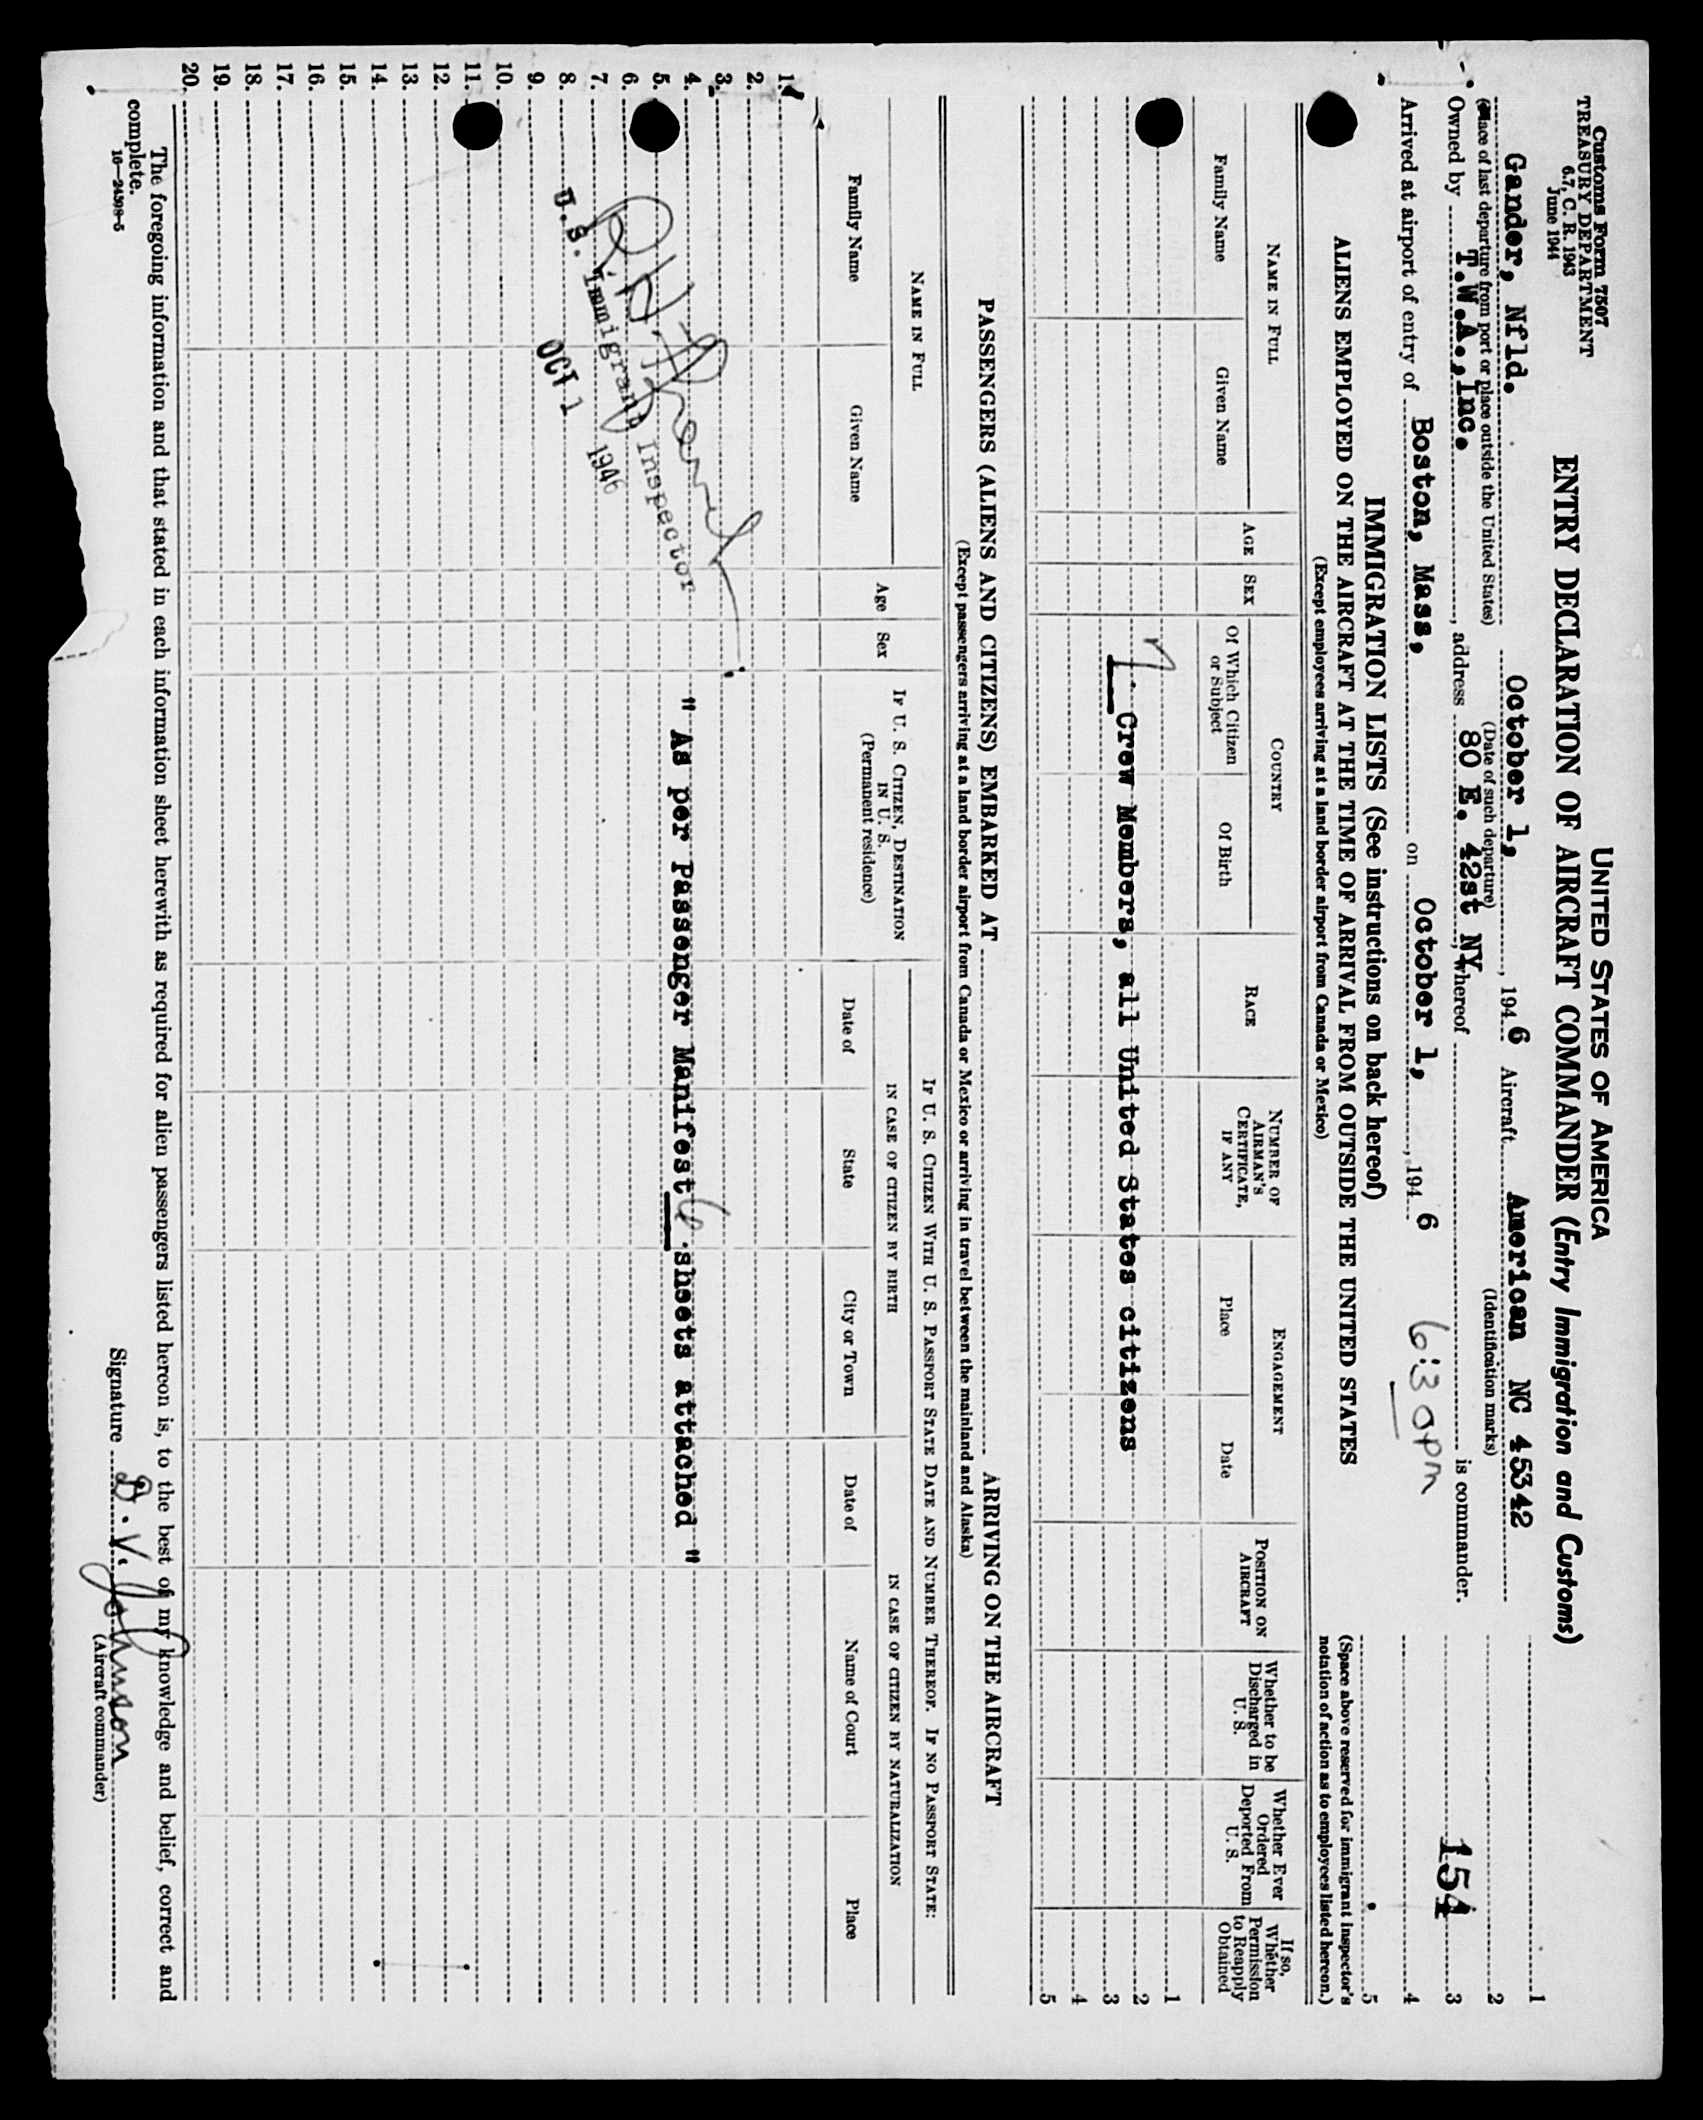 Customs Form 7507
TREASURY DEPARTMENT
6.7, C. R. 1943
June 1944
UNITED STATES OF AMERICA
ENTRY DECLARATION OF AIRCRAFT COMMANDER (Entry Immigration and Customs)
Gander, Nfld. October 1, , 1946 Aircraft American NC 45342
(Place of last departure from port or place outside the United States) (Date of such departure) (Identification marks)
Owned by T.W.A., Inc. , address 80 E. 42st NY, whereof is commander.
Arrived at airport of entry of Boston, Mass, on October 1, , 1946 6:30pm
1
2
3
4
5
154
(Space above reserved for immigrant inspector's
notation of action as to employees listed hereon.)
IMMIGRATION LISTS (See instructions on back hereof)
ALIENS EMPLOYED ON THE AIRCRAFT AT THE TIME OF ARRIVAL FROM OUTSIDE THE UNITED STATES
(Except employees arriving at a land border airport from Canada or Mexico)
NAME IN FULL
Family Name
Given Name
AGE
SEX
COUNTRY
Of Which Citizen or Subject
Of Birth
RACE
NUMBER OF AIRMAN'S CERTIFICATE, IF ANY
ENGAGEMENT
Place
Date
POSITION ON AIRCRAFT
Whether to be Discharged in U. S.
Whether Ever Ordered Deported From U. S.
If so, Whether Permission to Reapply Obtained
1
2
3
4
5
7 Crew Members, all United States citizens
PASSENGERS (ALIENS AND CITIZENS) EMBARKED AT ARRIVING ON THE AIRCRAFT
(Except passengers arriving at a land border airport from Canada or Mexico or arriving in travel between the mainland and Alaska)
NAME IN FULL
Family Name
Given Name
Age
Sex
IF U. S. CITIZEN, DESTINATION IN U. S.
(Permanent residence)
IF U. S. CITIZEN WITH U. S. PASSPORT STATE DATE AND NUMBER THEREOF. IF NO PASSPORT STATE:
IN CASE OF CITIZEN BY BIRTH
Date of
State
City or Town
IN CASE OF CITIZEN BY NATURALIZATION
Date of
Name of Court
Place
1.
2.
3.
4.
5.
6.
7.
8.
9.
10.
11.
12.
13.
14.
15.
16.
17.
18.
19.
20.
" As per Passenger Manifest 6 sheets attached "
U.S. Immigrant Inspector
OCT 1 1946
The foregoing information and that stated in each information sheet herewith as required for alien passengers listed hereon is, to the best of my knowledge and belief, correct and
complete.
16—24398-5
Signature D. V. Johnson
(Aircraft commander)